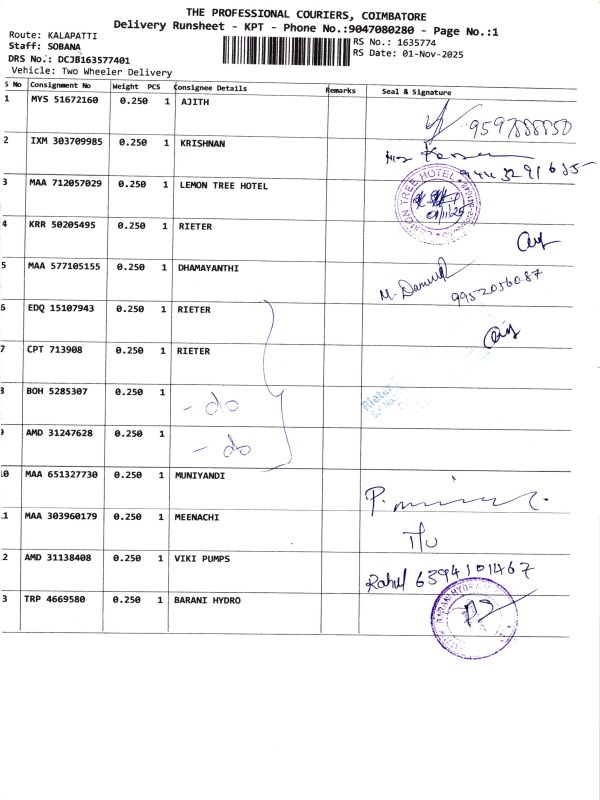 THE PROFESSIONAL COURIERS, COIMBATORE
Delivery Runsheet - KPT - Phone No.:9047080280 - Page No.:1
Route: KALAPATTI
Staff: SOBANA
DRS No.: DCJB163577401
Vehicle: Two Wheeler Delivery
RS No.: 1635774
RS Date: 01-Nov-2025
S No Consignment No Weight PCS Consignee Details Remarks Seal & Signature
1 MYS 51672160 0.250 1 AJITH
2 IXM 303709985 0.250 1 KRISHNAN
3 MAA 712057029 0.250 1 LEMON TREE HOTEL
01/11/25
4 KRR 50205495 0.250 1 RIETER
5 MAA 577105155 0.250 1 DHAMAYANTHI
9952056087
6 EDQ 15107943 0.250 1 RIETER
7 CPT 713908 0.250 1 RIETER
8 BOH 5285307 0.250 1 - do
9 AMD 31247628 0.250 1 - do
10 MAA 651327730 0.250 1 MUNIYANDI
11 MAA 303960179 0.250 1 MEENACHI
12 AMD 31138408 0.250 1 VIKI PUMPS
Rahul 6394101467
13 TRP 4669580 0.250 1 BARANI HYDRO